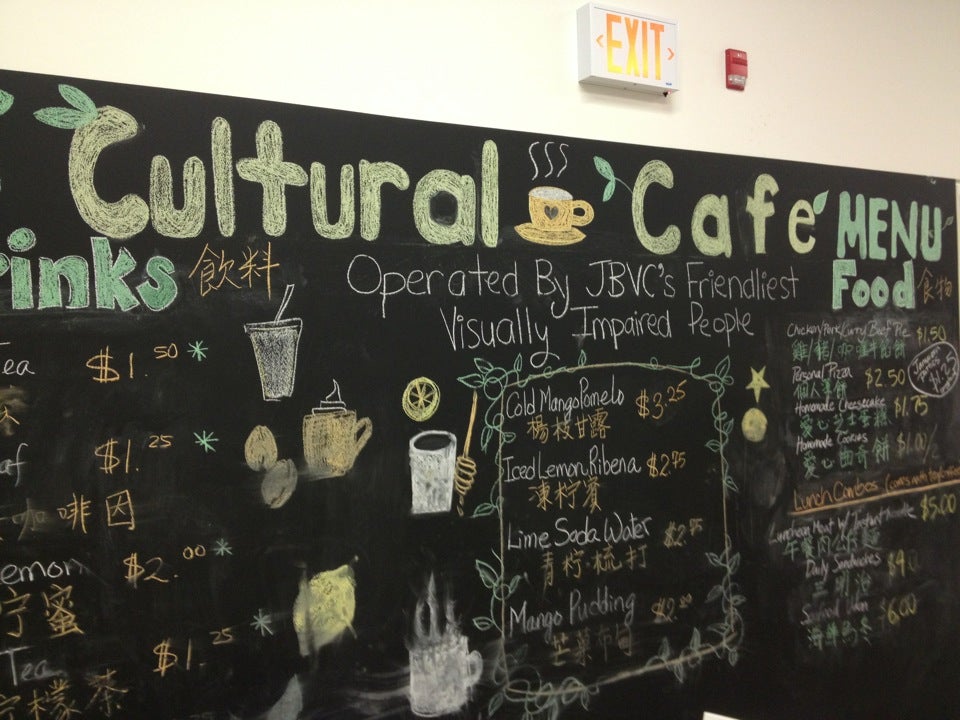 EXIT
Cultural Cafe MENU
飲料
Operated By JBVC's Friendliest
Visually Impaired People
$1.50 *
$1.25 *
咖啡因
$2.00 *
蜜
Tea $1.25 *
檬茶
Cold Mango Pomelo $3.25
楊枝甘露
Iced Lemon Ribena $2.75
凍柠賓
Lime Soda Water $2.75
青柠梳打
Mango Pudding $2.00
芒菓布甸
Food 食物
Chicken/Pork/Curry Beef Pie $1.50
雞/豬/咖喱牛餡餅
Personal Pizza $2.50
個人薄餅
Homemade Cheesecake $1.75
愛心芝士蛋糕
Homemade Cookies
愛心曲奇餅 $1.00/2
Lunch Combos
Luncheon Meat W/ Instant Noodle $5.00
午餐肉公仔麵
Daily Sandwiches
三明治
Seafood Udon $6.00
海鮮烏冬